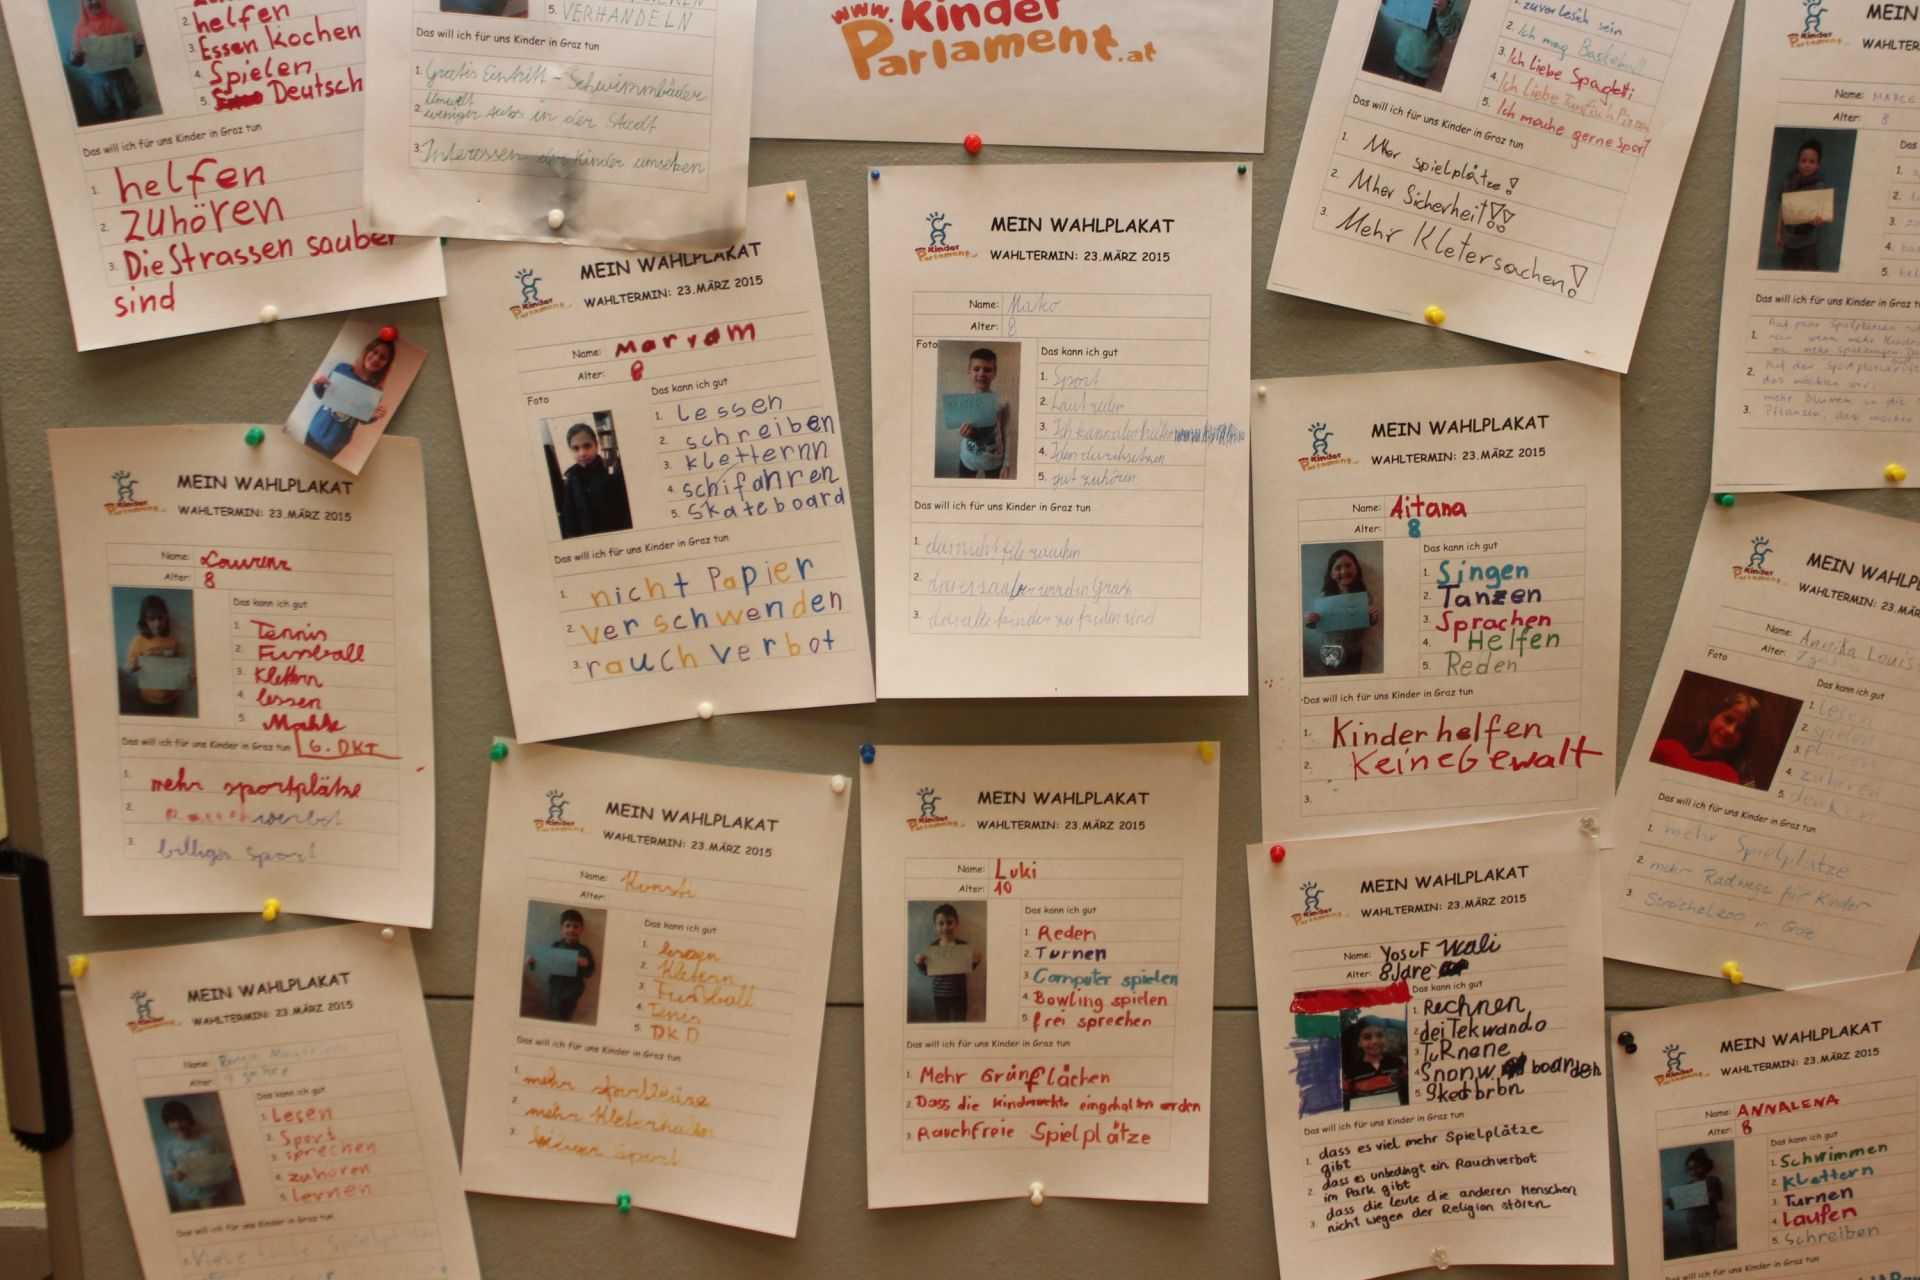 2. helfen
3. Essen Kochen
4. Spielen
5. Deutsch
Das will ich für uns Kinder in Graz tun
1. helfen
2. Zuhören
3. Die Strassen sauber
sind
5. VERHANDELN
Das will ich für uns Kinder in Graz tun
1. Gratis Eintritt - Schwimmbäder
2. Umwelt
weniger Autos in der Stadt
3. Interessen der Kinder umsetzen
www.Kinder
Parlament.at
1. zuverlesich sein
2. Ich mag Basketball
3. Ich liebe Spagetti
4. Ich liebe
5. Ich mache gerne Sport
Das will ich für uns Kinder in Graz tun
1. Mher spielplätze!
2. Mher Sicherheit!!
3. Mehr Kletersachen!
MEIN
WAHLTER
Name:
Alter: 8
Das
1.
2.
3.
4.
5.
Das will ich für uns Kinder in Graz
1. Auf paar Spielplätzen
2. Auf der
mehr Blumen in die
3. Pflanzen, das
Kinder
Parlament
MEIN WAHLPLAKAT
WAHLTERMIN: 23.MÄRZ 2015
Name: Maryam
Alter: 8
Foto
Das kann ich gut
1. lessen
2. schreiben
3. kletternn
4. schifahren
5. Skateboard
Das will ich für uns Kinder in Graz tun
1. nicht Papier
2. verschwenden
3. rauchverbot
Kinder
Parlament
MEIN WAHLPLAKAT
WAHLTERMIN: 23.MÄRZ 2015
Name: Mateo
Alter: 8
Foto
Das kann ich gut
1. Sport
2. Laut reden
3. Ich kann allen helfen
4. Iden durchsetzen
5. gut zuhören
Das will ich für uns Kinder in Graz tun
1. das nicht file rauchen
2. das es sauber
3. das alle kinder zufriden sind
Kinder
Parlament
MEIN WAHLPLAKAT
WAHLTERMIN: 23.MÄRZ 2015
Name: Aitana
Alter: 8
Das kann ich gut
1. Singen
2. Tanzen
3. Sprachen
4. Helfen
5. Reden
Das will ich für uns Kinder in Graz tun
1. Kinder helfen
2. Keine Gewalt
3.
Kinder
Parlament
MEIN WAHLPLAKAT
WAHLTERMIN: 23.MÄRZ 2015
Name: Laurenz
Alter: 8
Das kann ich gut
1. Tennis
2. Fussball
3. Klettern
4. lessen
5. Mathe
6. DKT
Das will ich für uns Kinder in Graz tun
1. mehr sportplätze
2.
3. billiger Sport
Kinder
Parlament
MEIN WAHLPL
WAHLTERMIN: 23.MÄR
Name: Annika Louis
Alter: 7
Foto
Das kann ich gut
1. lesen
2. spielen
3.
4. zuhören
5. denken
Das will ich für uns Kinder in Graz tun
1. mehr Spielplätze
2. mehr Radwege für Kinder
3. Streichelzoo in Graz
Kinder
Parlament
MEIN WAHLPLAKAT
WAHLTERMIN: 23.MÄRZ 2015
Name:
Alter:
Das kann ich gut
1. lessen
2. Kletern
3. Fussball
4. Tenis
5. DKD
Das will ich für uns Kinder in Graz tun
1. mehr
2. mehr Kleterhalen
3. billiger Sport
Kinder
Parlament
MEIN WAHLPLAKAT
WAHLTERMIN: 23.MÄRZ 2015
Name: Luki
Alter: 10
Das kann ich gut
1. Reden
2. Turnen
3. Computer spielen
4. Bowling spielen
5. frei sprechen
Das will ich für uns Kinder in Graz tun
1. Mehr Grünflächen
2. Dass die eingehalten erden
3. Rauchfreie Spielplätze
Kinder
Parlament
MEIN WAHLPLAKAT
WAHLTERMIN: 23.MÄRZ 2015
Name: Yosuf Wali
Alter: 8 Jare
Das kann ich gut
1. Rechnen
2. dei Tekwando
3. TuRnene
4. Snonw boarden
5. Sketbrbn
Das will ich für uns Kinder in Graz tun
1. dass es viel mehr Spielplätze
gibt
2. dass es unbedingt ein Rauchverbot
im Park gibt
3. dass die leute die anderen Menschen
nicht wegen der Religion stören
Kinder
Parlament
MEIN WAHLPLAKAT
WAHLTERMIN: 23.MÄRZ 2015
Name:
Alter: 9 Jahre
Das kann ich gut
1. Lesen
2. Sport
3. sprechen
4. zuhören
5. lernen
Das will ich für uns Kinder in Graz tun
1. Viele tolle Spielplätze
Kinder
Parlament
MEIN WAHLPLAKAT
WAHLTERMIN: 23.MÄRZ 2015
Name: ANNALENA
Alter: 8
Das kann ich gut
1. Schwimmen
2. Klettern
3. Turnen
4. Laufen
5. Schreiben
Das will ich für uns Kinder in Graz tun